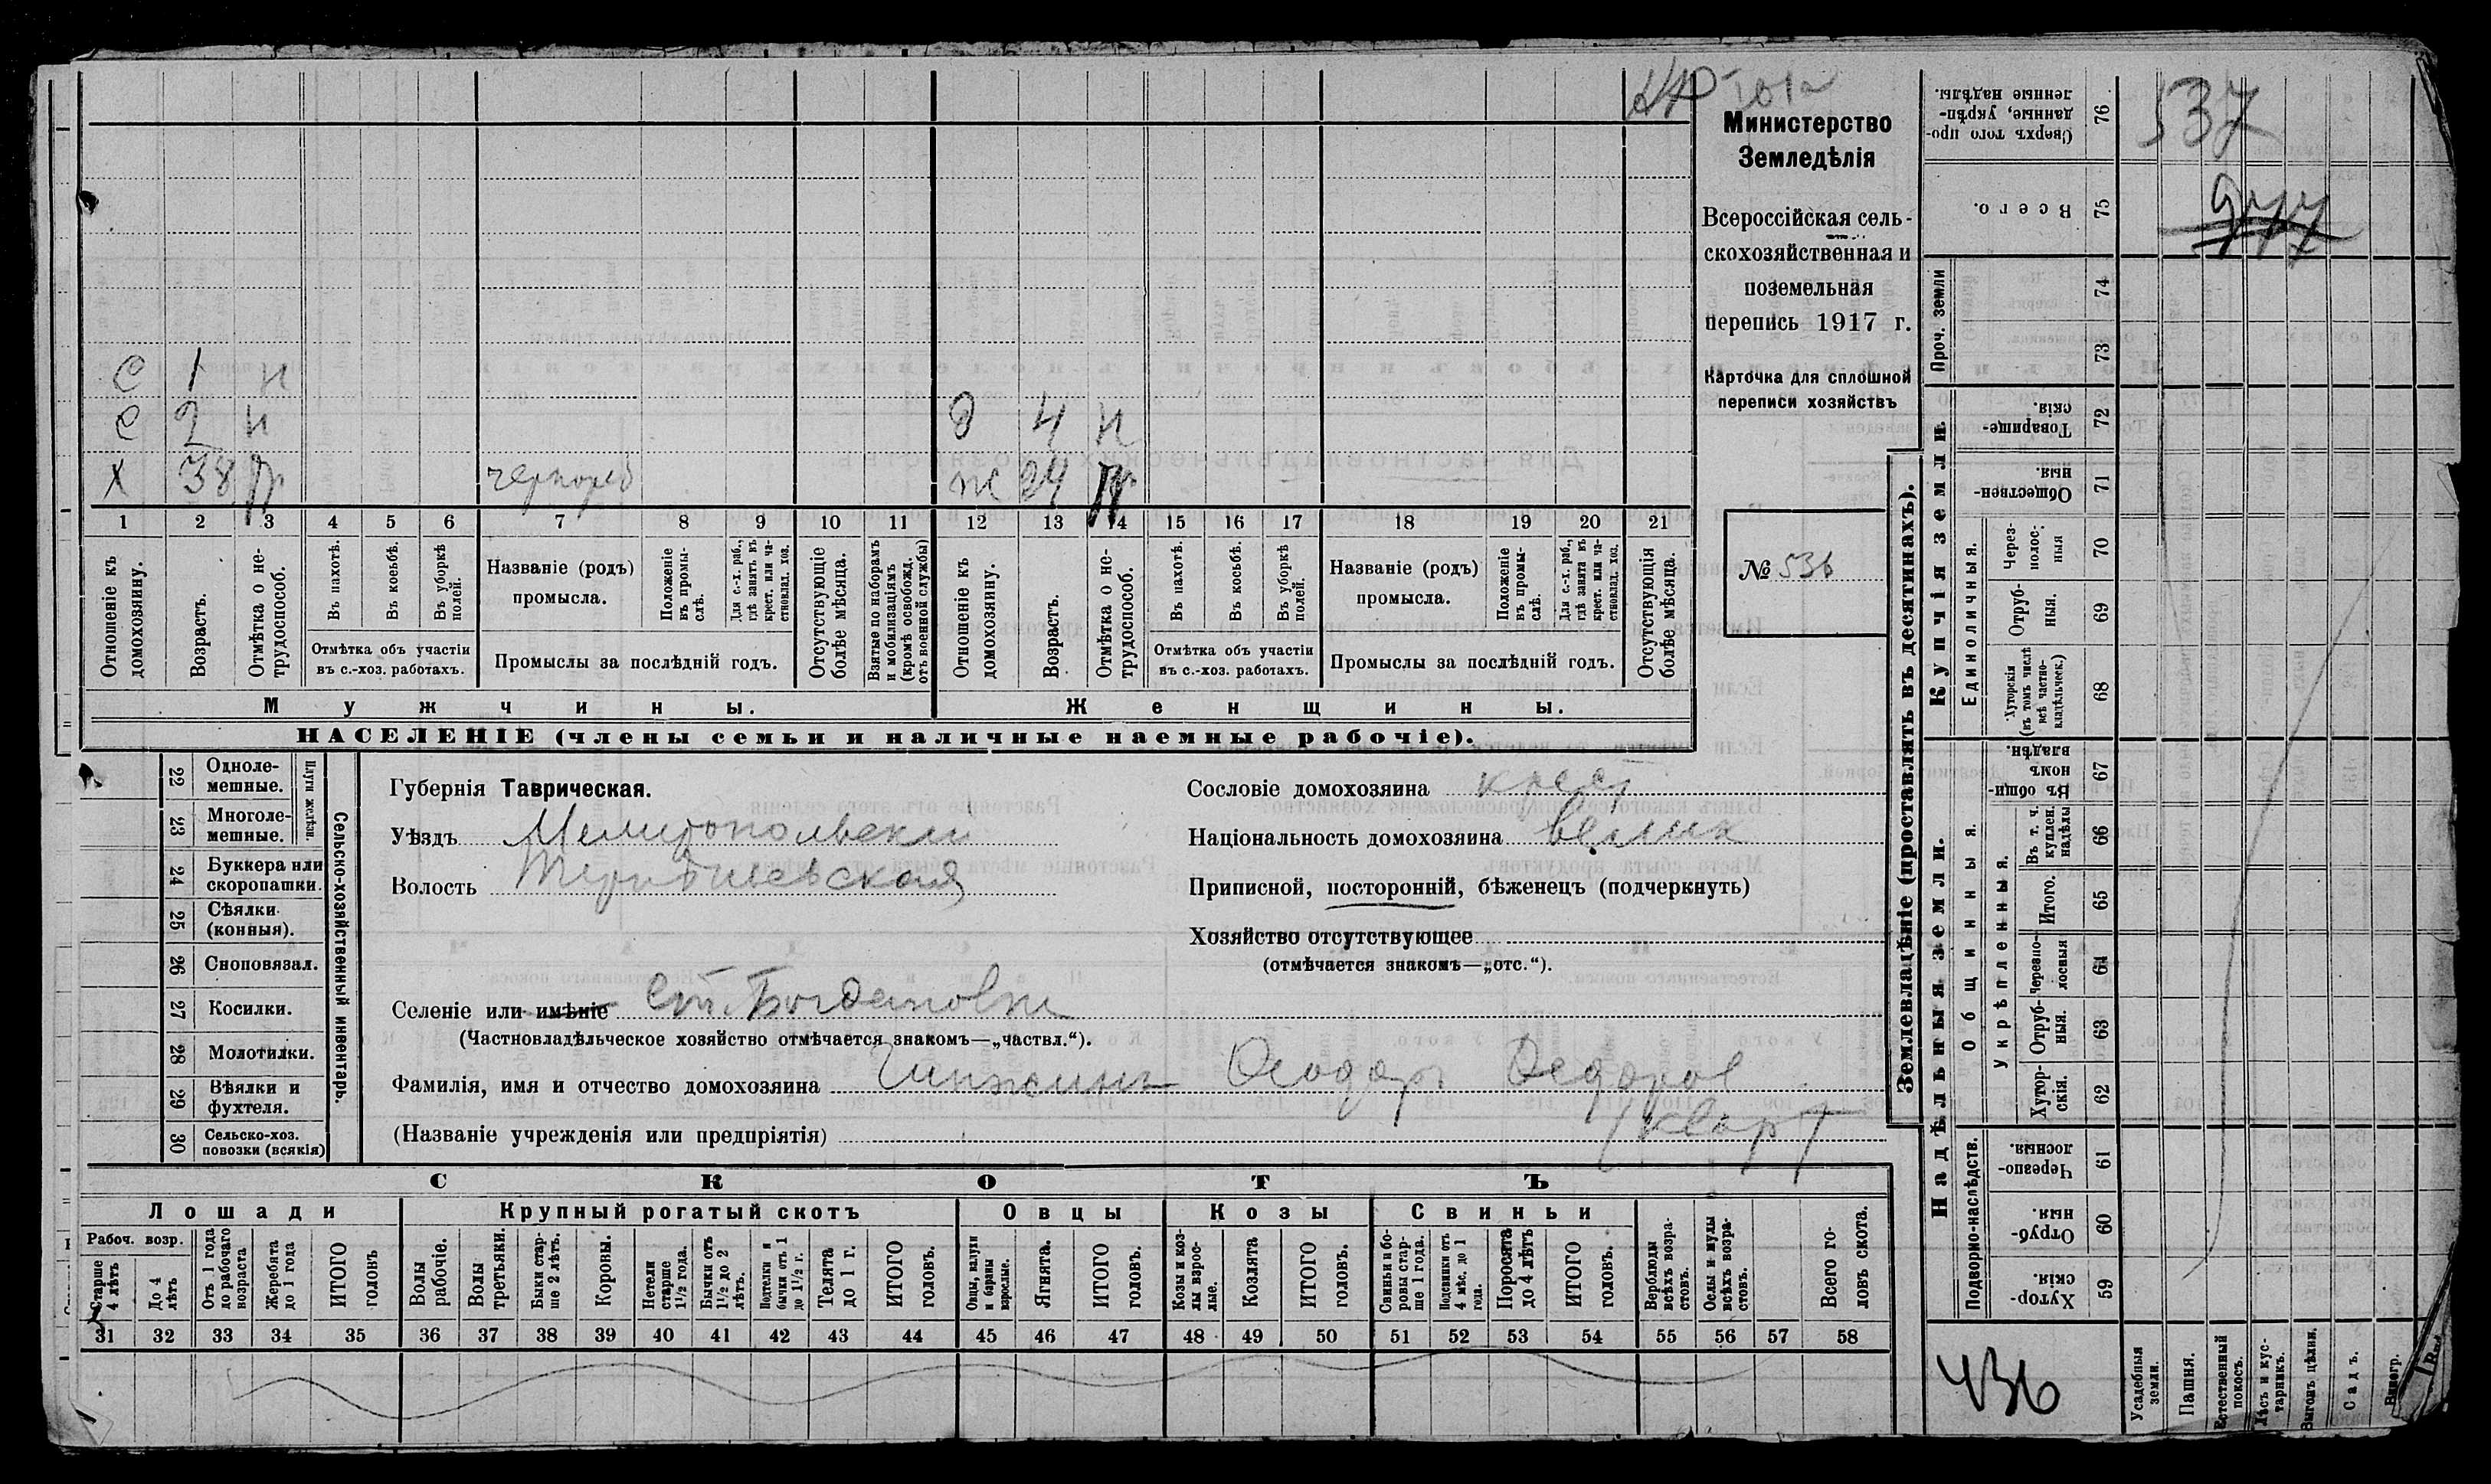 Министерство
Земледѣлія
Всероссійская сель-
скохозяйственная и
поземельная
перепись 1917 г.
Карточка для сплошной
переписи хозяйствъ
№ 536
с 1 н
с 2 н д 4 н
х 38 чернораб ж
1 2 3 4 5 6 7 8 9 10 11 12 13 14 15 16 17 18 19 20 21
Отношеніе къ домохозяину.
Возрастъ.
Отмѣтка о не-трудоспособ.
Въ пахотѣ.
Въ косьбѣ.
Въ уборкѣ полей.
Отмѣтка объ участіи
въ с.-хоз. работахъ.
Названіе (родъ)
промысла.
Положеніе въ промы-слѣ.
Для с.-х. раб., гдѣ занятъ въ крест. или ча-стновлад. хоз.
Промыслы за послѣдній годъ.
Отсутствующіе болѣе мѣсяца.
Взятые по наборамъ и мобилизаціямъ (кромѣ освобожд. отъ военной службы)
Отношеніе къ домохозяину.
Возрастъ.
Отмѣтка о не-трудоспособ.
Въ пахотѣ.
Въ косьбѣ.
Въ уборкѣ полей.
Отмѣтка объ участіи
въ с.-хоз. работахъ.
Названіе (родъ)
промысла.
Положеніе въ промы-слѣ.
Для с.-х. раб., гдѣ занята въ крест. или ча-стновлад. хоз.
Промыслы за послѣдній годъ.
Отсутствующія болѣе мѣсяца.
Мужчины. Женщины.
НАСЕЛЕНІЕ (члены семьи и наличные наемные рабочіе).
Сельско-хозяйственный инвентарь.
Плуги желѣзн.
22 Одноле-мешные.
23 Многоле-мешные.
24 Буккера или скоропашки.
25 Сѣялки (конныя).
26 Сноповязал.
27 Косилки.
28 Молотилки.
29 Вѣялки и фухтеля.
30 Сельско-хоз. повозки (всякія)
Губернія Таврическая.
Уѣздъ Мелитопольскій
Волость
Сословіе домохозяина крест
Національность домохозяина велик
Приписной, посторонній, бѣженецъ (подчеркнуть)
Хозяйство отсутствующее
(отмѣчается знакомъ—„отс.“).
Селеніе или имѣніе ст. Богдановка
(Частновладѣльческое хозяйство отмѣчается знакомъ—„частвл.“).
Фамилія, имя и отчество домохозяина Феодоръ Федоров
(Названіе учрежденія или предпріятія) кварт
СКОТЪ
Лошади Крупный рогатый скотъ Овцы Козы Свиньи
Рабоч. возр.
Старше 4 лѣтъ
До 4 лѣтъ
Отъ 1 года до рабочаго возраста
Жеребята до 1 года
ИТОГО головъ
Волы рабочіе.
Волы третьяки.
Быки стар-ше 2 лѣтъ.
Коровы.
Нетели старше 1½ года.
Бычки отъ 1½ до 2 лѣтъ.
Подтелки и бычки отъ 1 до 1½ г.
Телята до 1 г.
ИТОГО головъ.
Овцы, валухи и бараны взрослые.
Ягнята.
ИТОГО головъ.
Козы и коз-лы взрос-лые.
Козлята
ИТОГО головъ.
Свиньи и бо-ровы стар-ше 1 года.
Подсвинки отъ 4 мѣс. до 1 года.
Поросята до 4 лѣтъ
ИТОГО головъ.
Верблюды всѣхъ возра-стовъ.
Ослы и мулы всѣхъ возра-стовъ.
Всего го-ловъ скота.
31 32 33 34 35 36 37 38 39 40 41 42 43 44 45 46 47 48 49 50 51 52 53 54 55 56 57 58
Землевладѣніе (проставлять въ десятинахъ).
Надѣльныя земли.
Купчія земли.
Проч. земли
Подворно-наслѣдств.
Общинныя.
Укрѣпленныя.
Единоличныя.
76 Сверхъ того про-данные, укрѣп-ленные надѣлы.
75 Всего.
74
73
72 Товарище-скія.
71 Обществен-ныя.
70 Через-полос-ныя
69 Отруб-ныя.
68 Хуторскія (въ томъ числѣ всѣ частно-владѣльческ.)
67 Въ общин-номъ владѣн.
66 Въ т. ч. куплен. надѣлы
65 Итого.
64 Черезпо-лосныя
63 Отруб-ныя.
62 Хутор-скія.
61 Черезпо-лосныя.
60 Отруб-ныя.
59 Хутор-скія.
Усадебныя земли.
Пашня.
Естественный покосъ.
Лѣсъ и кус-тарникъ.
Выгонъ цѣлин.
Садъ.
Виногр.
537
436